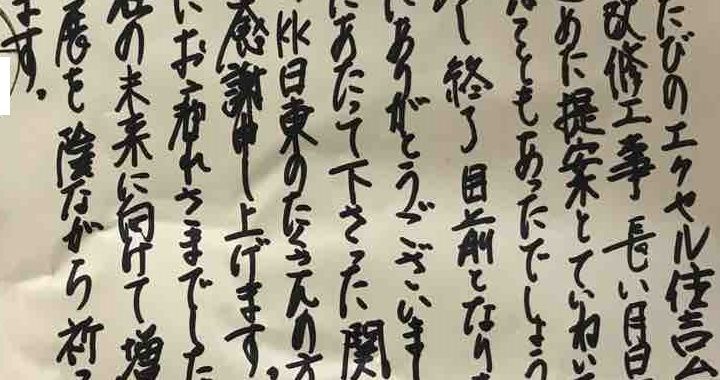 たびのエクセル住吉公
改修工事 長い月日
めた提案とていねい
てともあったでしょう
終了目前となりま
にありがとうございまし
にあたって下さった関
KK日東のたくさんの方
感謝申し上げます。
におつかれさまでした
の未来に向けて増
展を陰ながら祈っ
ます。